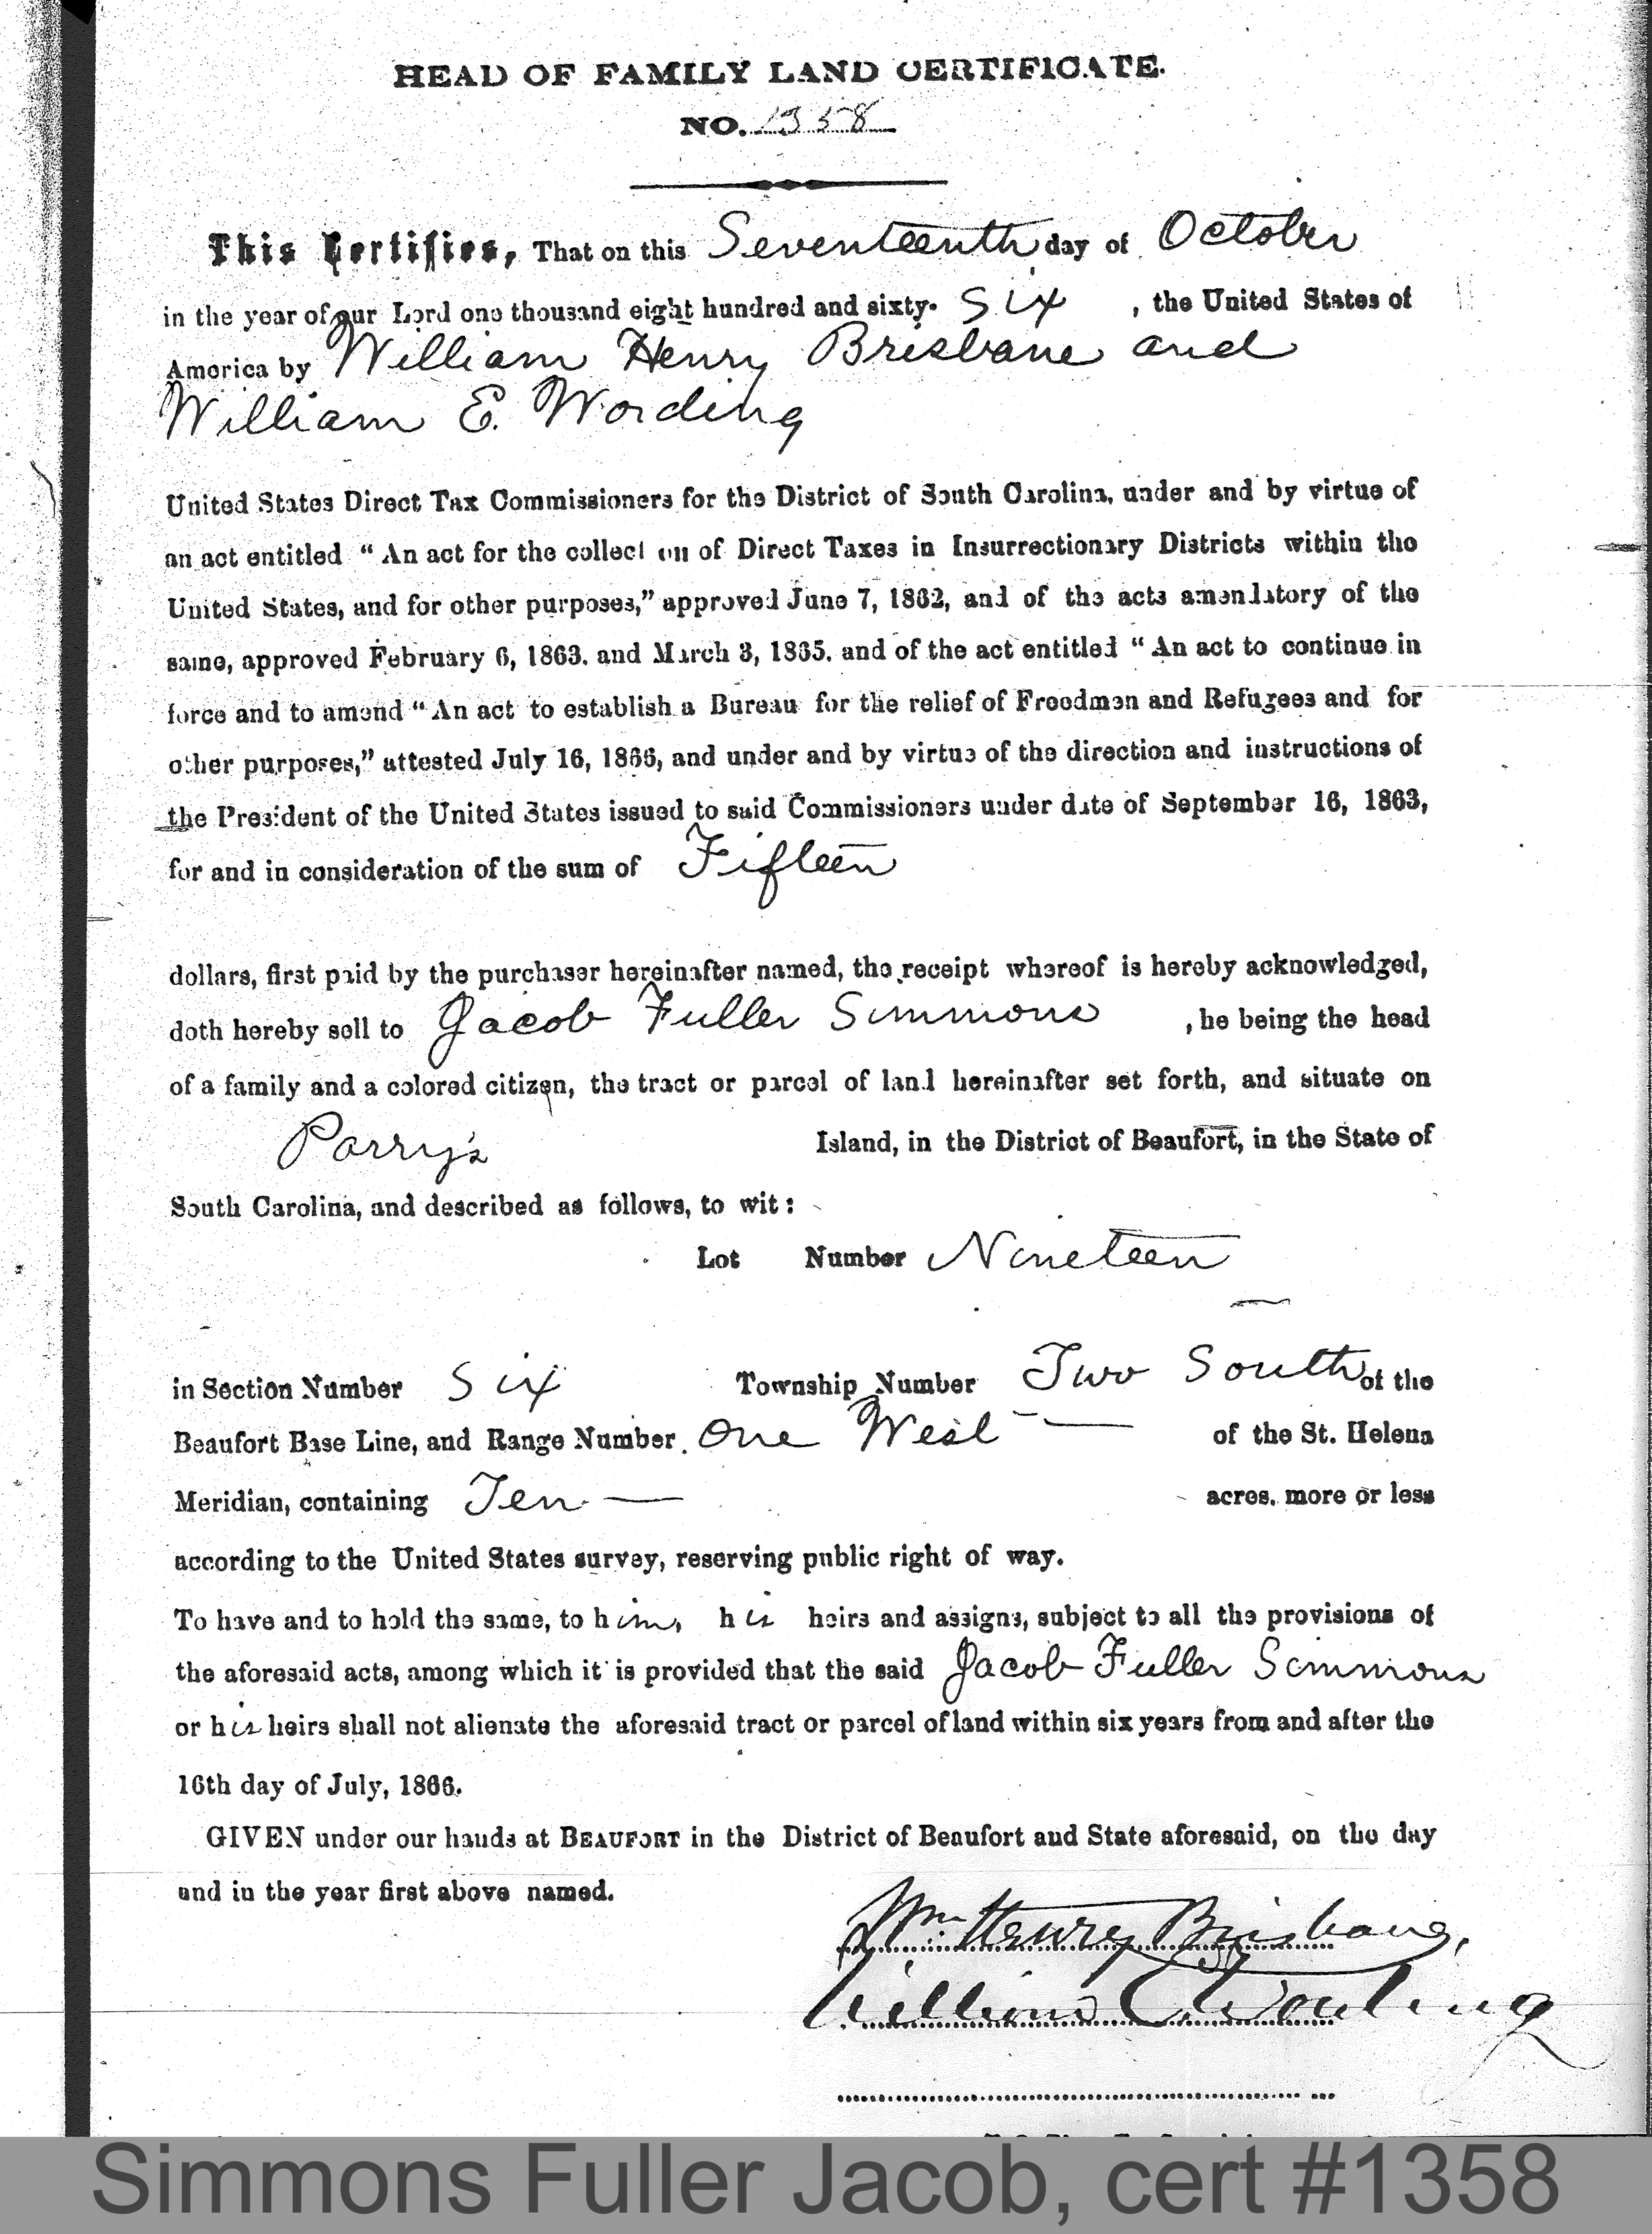 HEAD OF FAMILY LAND CERTIFICATE.
NO. 1358
This Certifies, That on this Seventeenth day of October
in the year of our Lord one thousand eight hundred and sixty- Six , the United States of
America by William Henry Brisbane and
William E. Wording
United States Direct Tax Commissioners for the District of South Carolina, under and by virtue of
an act entitled “An act for the collection of Direct Taxes in Insurrectionary Districts within the
United States, and for other purposes,” approved June 7, 1862, and of the acts amendatory of the
same, approved February 6, 1863. and March 3, 1865. and of the act entitled “An act to continue in
force and to amend “An act to establish a Bureau for the relief of Freedmen and Refugees and for
other purposes,” attested July 16, 1866, and under and by virtue of the direction and instructions of
the President of the United States issued to said Commissioners under date of September 16, 1863,
for and in consideration of the sum of Fifteen
dollars, first paid by the purchaser hereinafter named, the receipt whereof is hereby acknowledged,
doth hereby sell to Jacob Fuller Simmons , he being the head
of a family and a colored citizen, the tract or parcel of land hereinafter set forth, and situate on
Parry's Island, in the District of Beaufort, in the State of
South Carolina, and described as follows, to wit:
Lot Number Nineteen
in Section Number Six Township Number Two South of the
Beaufort Base Line, and Range Number One West — of the St. Helena
Meridian, containing Ten — acres. more or less
according to the United States survey, reserving public right of way.
To have and to hold the same, to him, his heirs and assigns, subject to all the provisions of
the aforesaid acts, among which it is provided that the said Jacob Fuller Simmons
or his heirs shall not alienate the aforesaid tract or parcel of land within six years from and after the
16th day of July, 1866.
GIVEN under our hands at BEAUFORT in the District of Beaufort and State aforesaid, on the day
and in the year first above named.
Wm. Henry Brisbane,
William E. Wording
Simmons Fuller Jacob, cert #1358